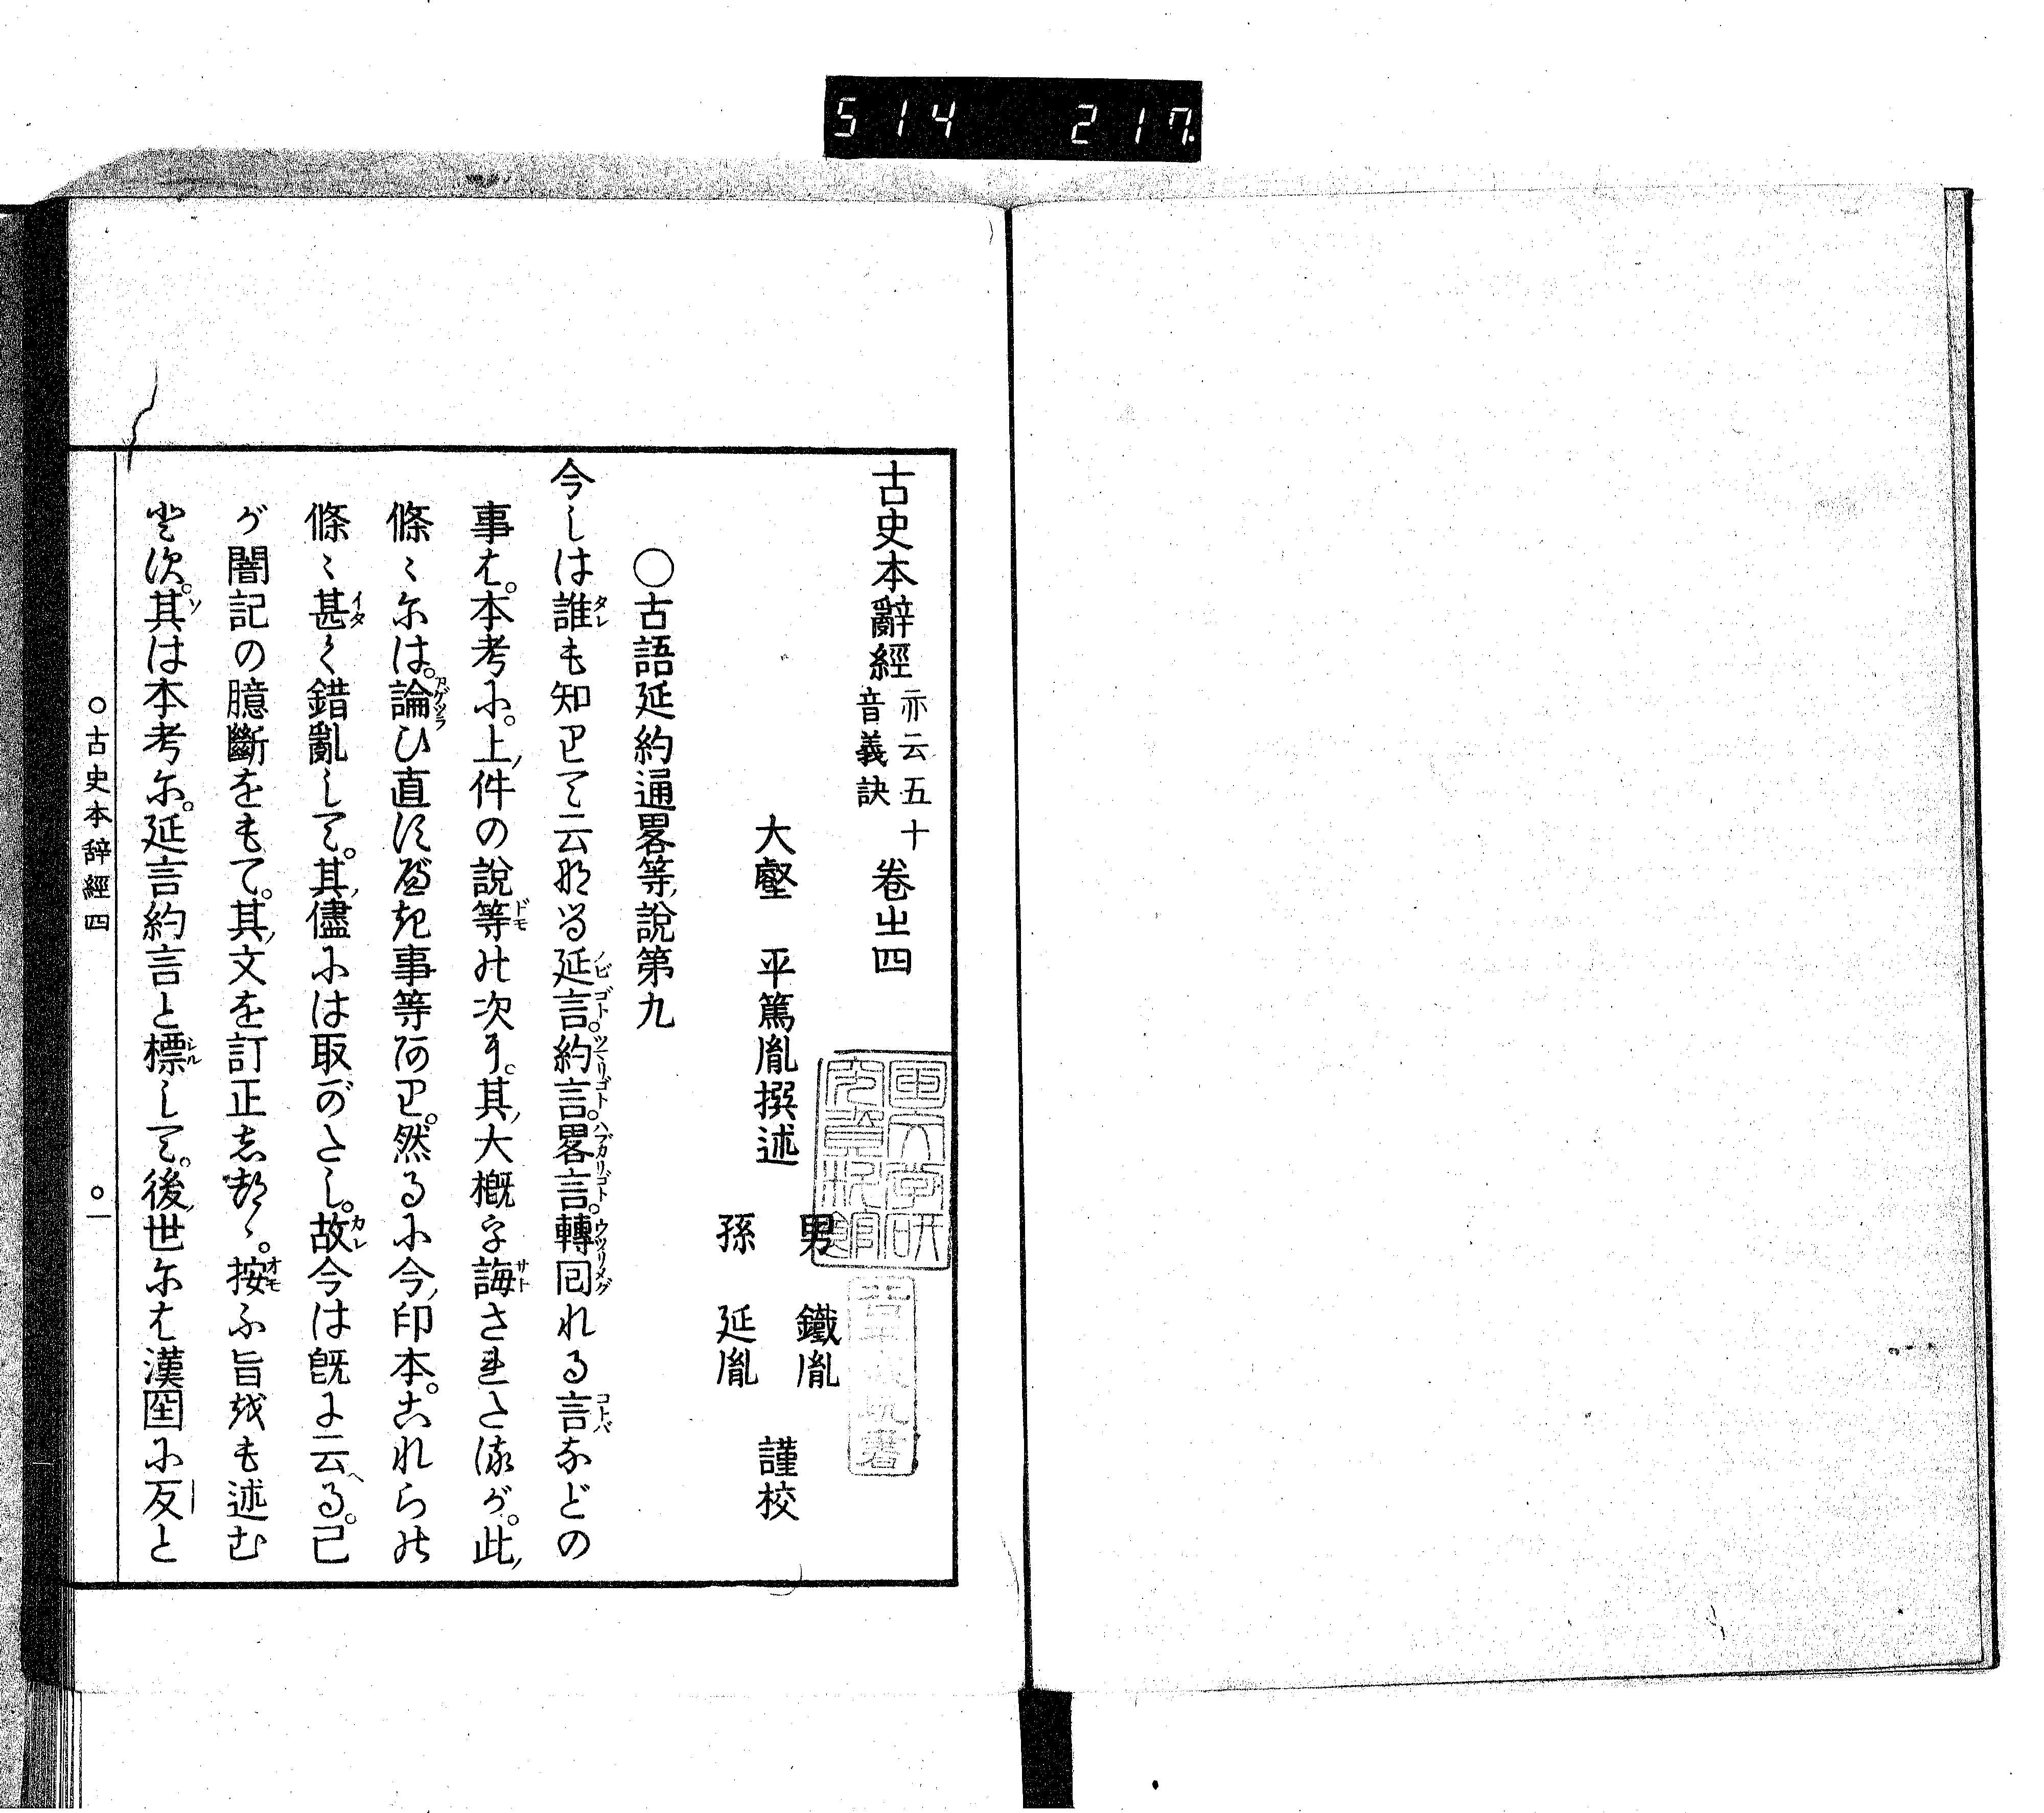 514 217.
古史本辭經 亦云五十音義訣 卷㞢四
大壑 平篤胤撰述
男 鐵胤
孫 延胤
謹校
○古語延約通畧等ノ說第九
今しは誰も知りて云なる延言。約言。畧言。轉回れる言などの
事は。本考に。上ノ件の說等の次に。其ノ大槪を誨されたるが。此ノ
條〻には。論ひ直すべき事等あり。然るに今ノ印本。これらの
條〻甚く錯亂して。其ノ儘には取がたし。故今は旣に云へる。己
が闇記の臆斷をもて。其ノ文を訂正しつゝ。按ふ旨をも述む
とす。其は本考に。延言約言と標して。後ノ世には漢國に反と
○古史本辞經四
○一